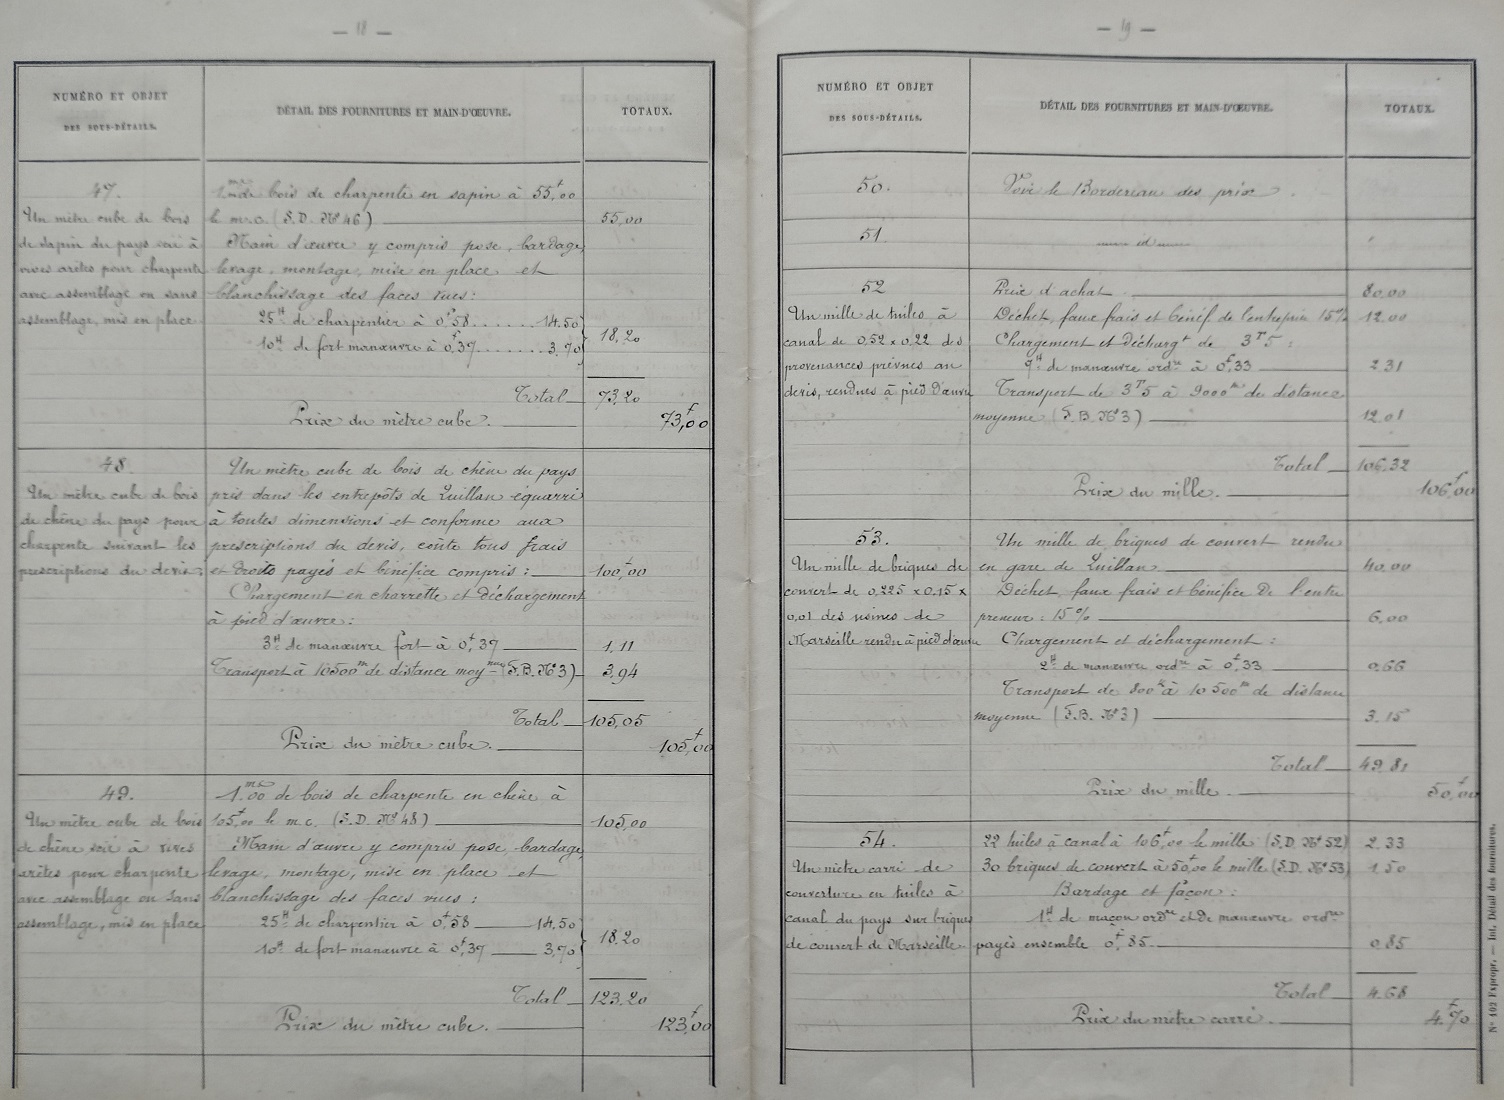 — 18 —
NUMÉRO ET OBJET
DES SOUS-DÉTAILS.
DÉTAIL DES FOURNITURES ET MAIN-D'ŒUVRE.
TOTAUX.
47.
Un mètre cube de bois
de sapin du pays scié à
vives arêtes pour charpente
avec assemblage ou sans
assemblage, mis en place
1mc de bois de charpente en sapin à 55f,00
le m.c. (S.D. N° 46) 55,00
Main d'œuvre y compris pose, bardage,
levage, montage, mise en place et
blanchissage des faces vues:
25H de charpentier à 0f58...... 14.50
10H de fort manœuvre à 0,f37....... 3.70
18,20
Total 73,20
Prix du mètre cube. 73f,00
48.
Un mètre cube de bois
de chêne du pays pour
charpente suivant les
prescriptions du devis:
Un mètre cube de bois de chêne du pays
pris dans les entrepôts de Quillan équarri
à toutes dimensions et conforme aux
prescriptions du devis, coûte tous frais
et droits payés et bénéfice compris: 100f,00
Chargement en charrette et déchargement
à pied d'œuvre:
3H de manœuvre fort à 0f,37 1,11
Transport à 10500m de distance moyenne (F.B. N°3) 3,94
Total 105,05
Prix du mètre cube. 105f,00
49.
Un mètre cube de bois
de chêne scié à vives
arêtes pour charpente
avec assemblage ou sans
assemblage, mis en place
1mc.00 de bois de charpente en chêne à
105f,00 le m.c. (S.D. N° 48) 105,00
Main d'œuvre y compris pose, bardage,
levage, montage, mise en place et
blanchissage des faces vues;
25H de charpentier à 0f,58 14.50
10H de fort manœuvre à 0f,37 3,70
18.20
Total 123,20
Prix du mètre cube. 123f,00
— 19 —
NUMÉRO ET OBJET
DES SOUS-DÉTAILS.
DÉTAIL DES FOURNITURES ET MAIN-D'ŒUVRE.
TOTAUX.
50.
Voir le Bordereau des prix.
51.
id
52
Un mille de tuiles à
canal de 0,52 x 0,22 des
provenances prévues au
devis, rendues à pied d'œuvre
Prix d'achat 80,00
Déchet, faux frais et bénéf. de l'entrepr. 15% 12.00
Chargement et décharg't de 3T5:
7H de manœuvre ordre à 0f,33 2.31
Transport de 3T5 à 9000m de distance
moyenne (F.B. N°3) 12.01
Total 106.32
Prix du mille. 106f,00
53.
Un mille de briques de
couvert de 0,225 x 0.15 x
0,01 des usines de
Marseille rendu à pied d'œuvre
Un mille de briques de couvert rendu
en gare de Quillan 40.00
Déchet, faux frais et bénéfice de l'entre
preneur: 15% 6,00
Chargement et déchargement:
2H de manœuvre ordre à 0f,33 0.66
Transport de 800k à 10500m de distance
moyenne (F.B. N°3) 3.15
Total 49.81
Prix du mille. 50f,00
54.
Un mètre carré de
couverture en tuiles à
canal du pays sur briques
de couvert de Marseille
22 tuiles à canal à 106f,00 le mille (S.D. N° 52) 2.33
30 briques de couvert à 50f,00 le mille (S.D. N° 53) 1.50
Bardage et façon:
1H de maçon ordre et de manœuvre ordre
payés ensemble 0f,85 0.85
Total 4.68
Prix du mètre carré. 4f,70
N° 102 Expropr. — Int. Détail des fournitures.